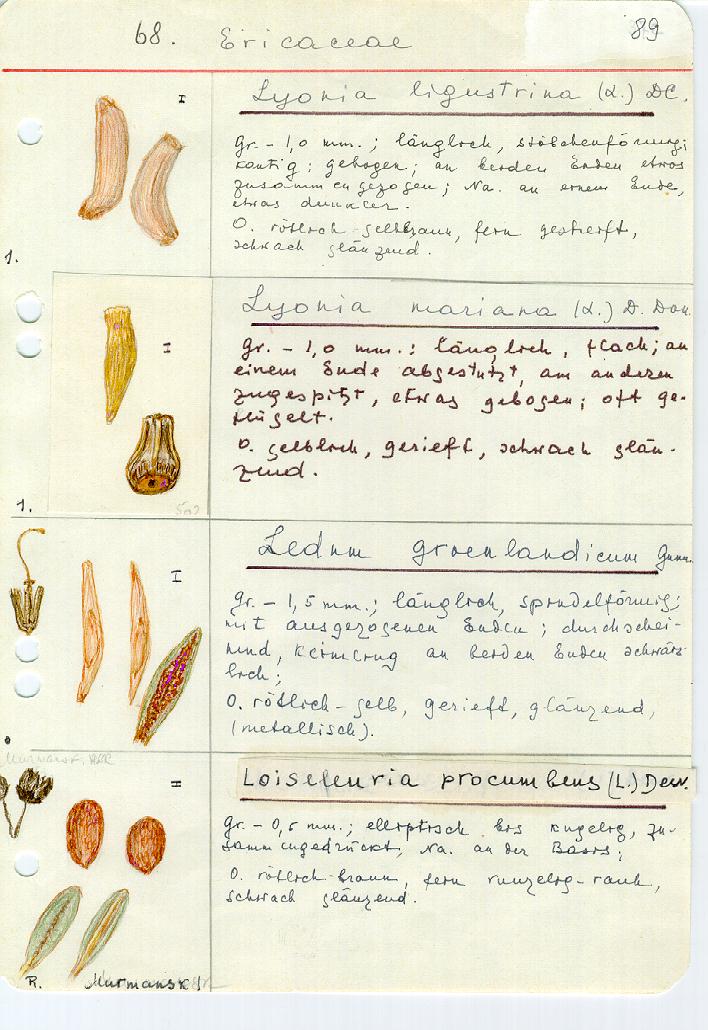 68. Ericaceae 89
I
Lyonia ligustrina (L.) DC.
Gr. - 1,0 mm.; länglich, stäbchenförmig;
kantig; gebogen; an beiden Enden etwas
zusammengezogen; Na. an einem Ende,
etwas dunkler.
O. rötlich-gelbbraun, fein gestreift,
schwach glänzend.
1.
I
Lyonia mariana (L.) D. Don.
Gr. - 1,0 mm.: länglich, flach; an
einem Ende abgestutzt, am anderen
zugespitzt, etwas gebogen; oft ge-
flügelt.
O. gelblich, gerieft, schwach glän-
zend.
1.
I
Ledum groenlandicum
Gr. - 1,5 mm.; länglich, spindelförmig;
mit ausgezogenen Enden; durchschei-
nend, an beiden Enden schwärz-
lich;
O. rötlich-gelb, gerieft, glänzend,
(metallisch).
II
Loiseleuria procumbens (L.) Desv.
Gr. - 0,5 mm.; elliptisch bis kugelig, zu-
sammengedrückt, Na. an der Basis;
O. rötlich-braun, fein runzelig-rauh,
schwach glänzend.
R. Murmansk